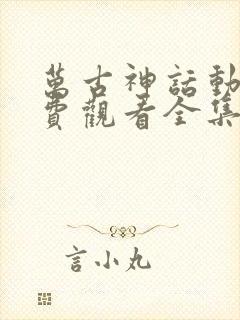 萬古神話動
費觀看全集
言小丸